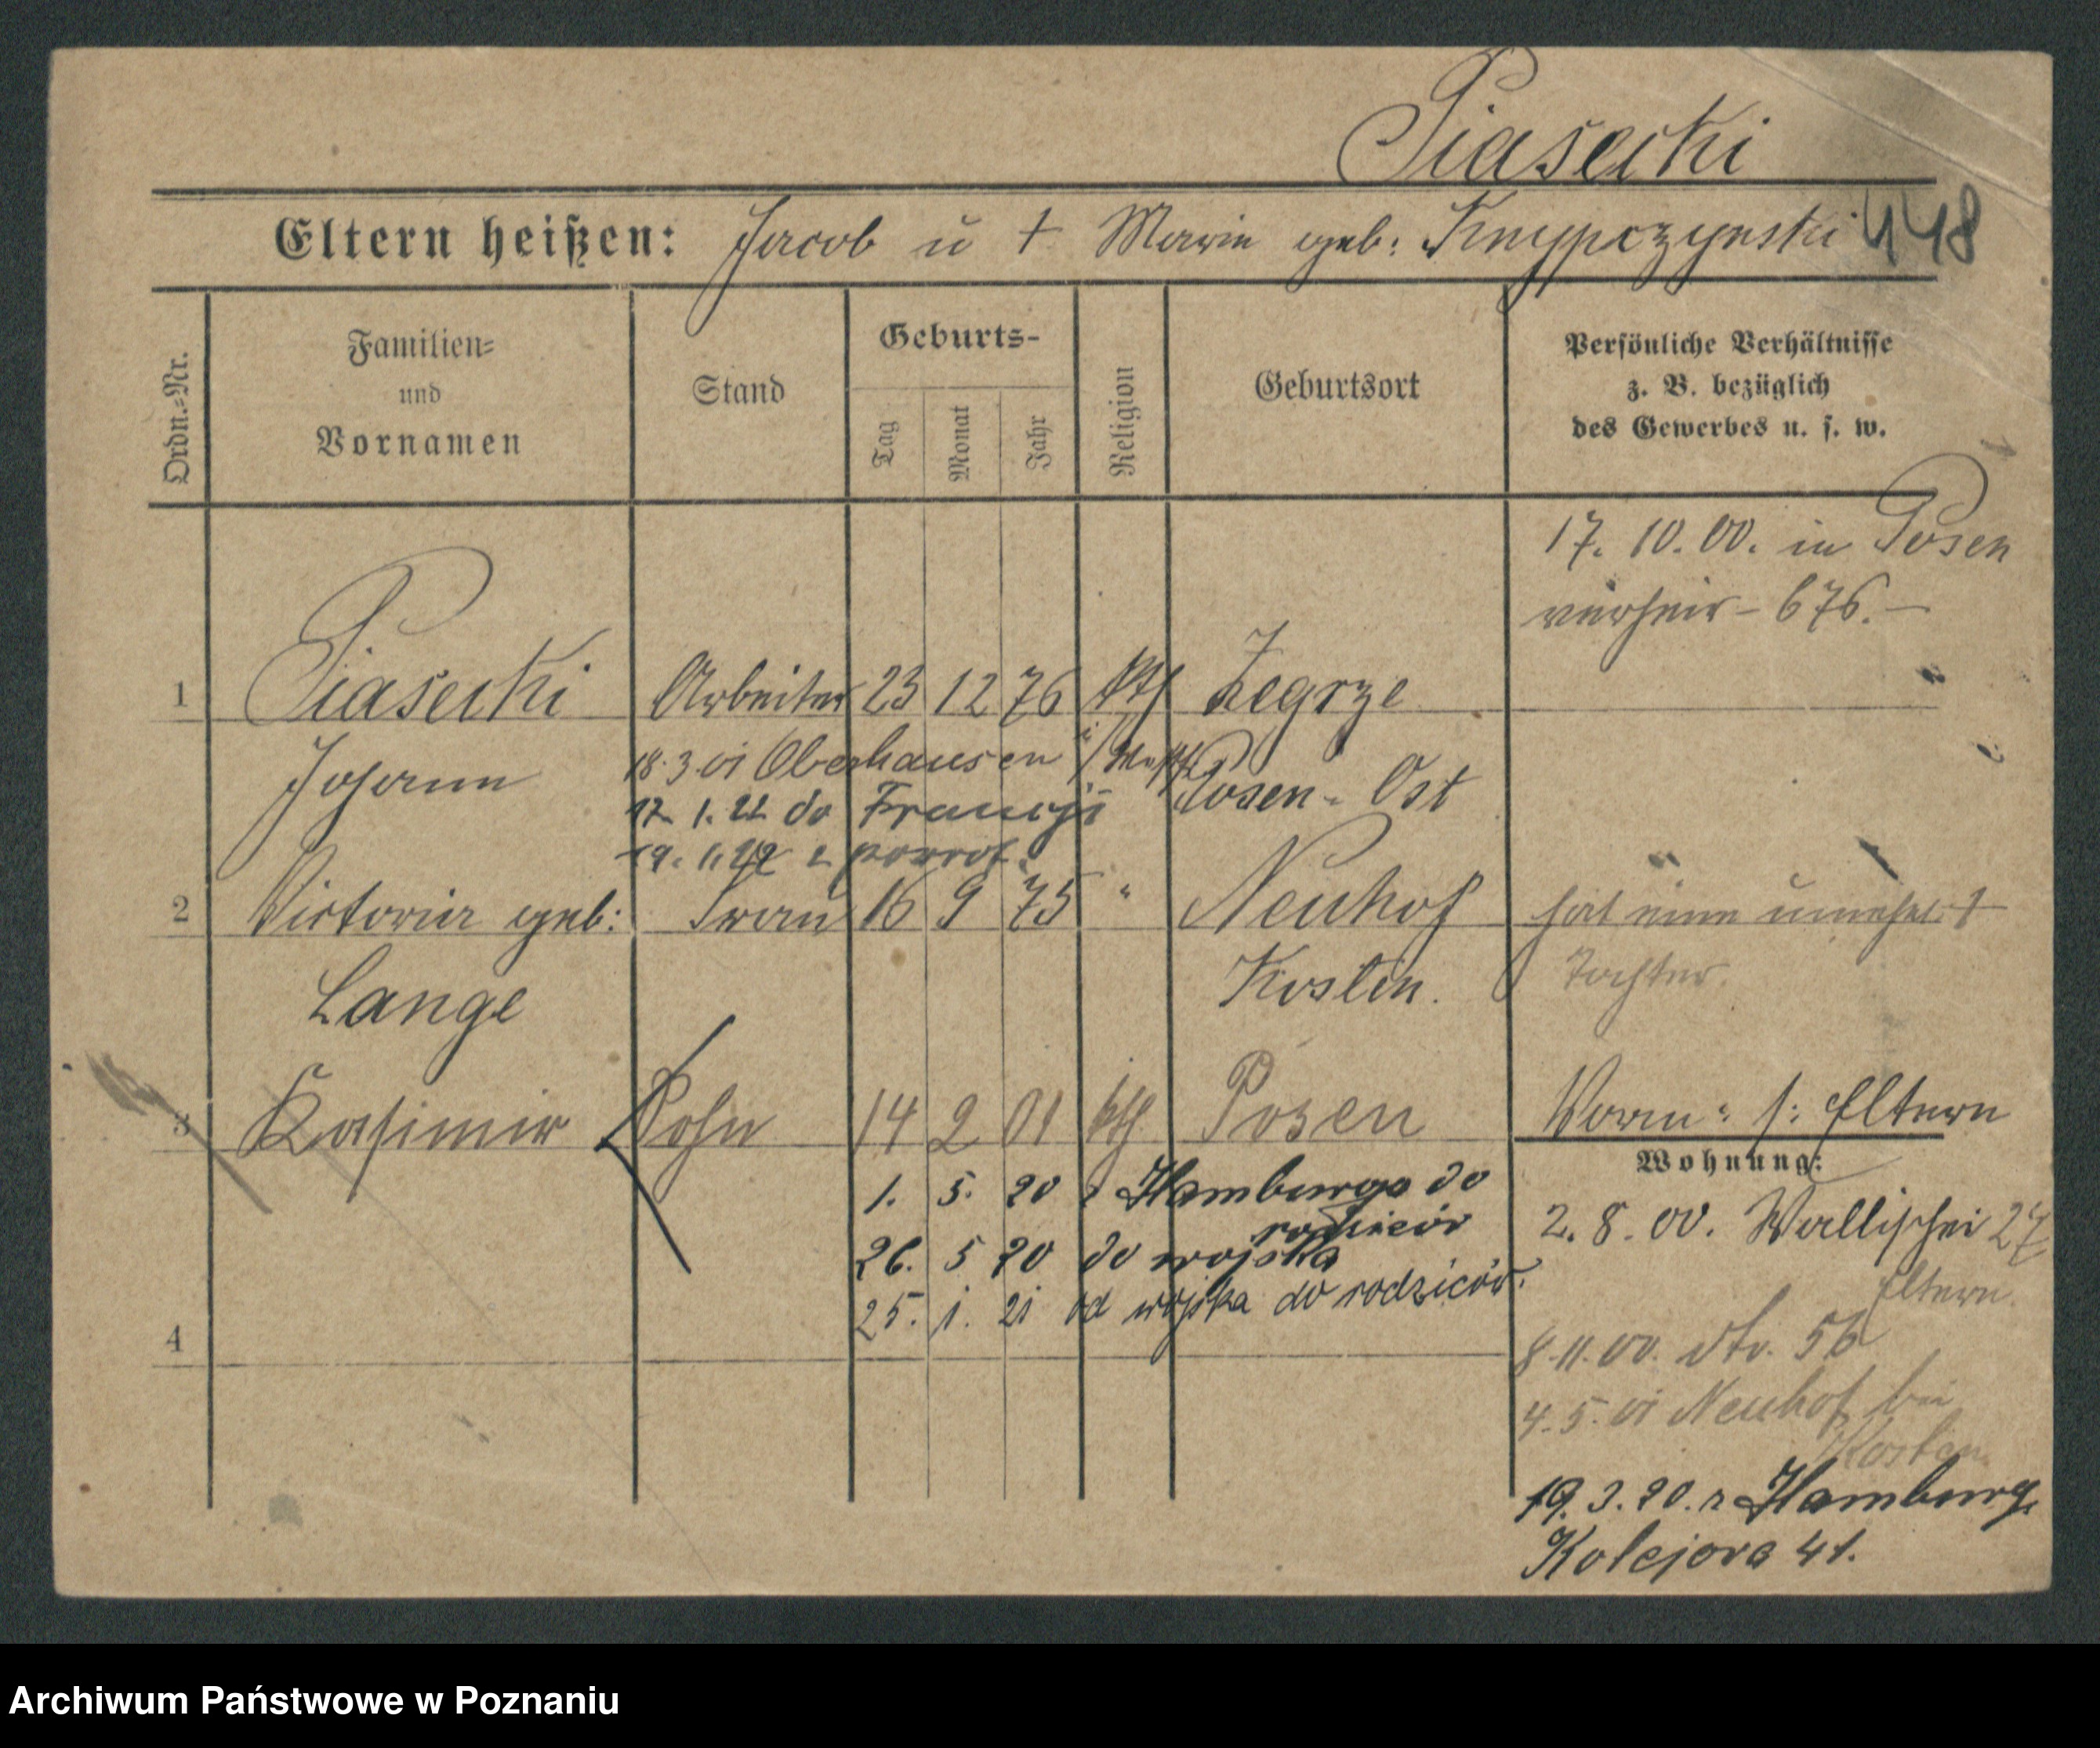 Piasecki
Eltern heißen: Jacob u † Marie geb: 448
Ordn.-Nr.
Familien-
und
Vornamen
Stand
Geburts-
Tag
Monat
Jahr
Religion
Geburtsort
Persönliche Verhältnisse
z. B. bezüglich
des Gewerbes u. s. w.
17. 10. 00. in Posen
verheir - 676. -
1 Piasecki Arbeiter 23 12 76 kth Zegrze
Johann 18. 3. 01 Oberhausen Posen-Ost
17. 1. 22 do Francji
19. 1. 22 z powrot.
2 Victoria geb: Frau 16 9 75 " Neuhof hat eine unehel. †
Lange Kosten. Tochter.
3 Kasimir Sohn 14 2 01 kth Posen Worm: s: Eltern
Wohnung:
1. 5. 20 z Hamburga do
rodziców
2. 8. 00. Wallischei 27
Eltern.
26. 5 20 do wojska
25. 1. 21 od wojska do rodziców.
4
8. 11. 00. dto. 56
4. 5. 01 Neuhof bei
Kosten
19. 3. 20. z Hamburg.
Kolejowa 41.
Archiwum Państwowe w Poznaniu